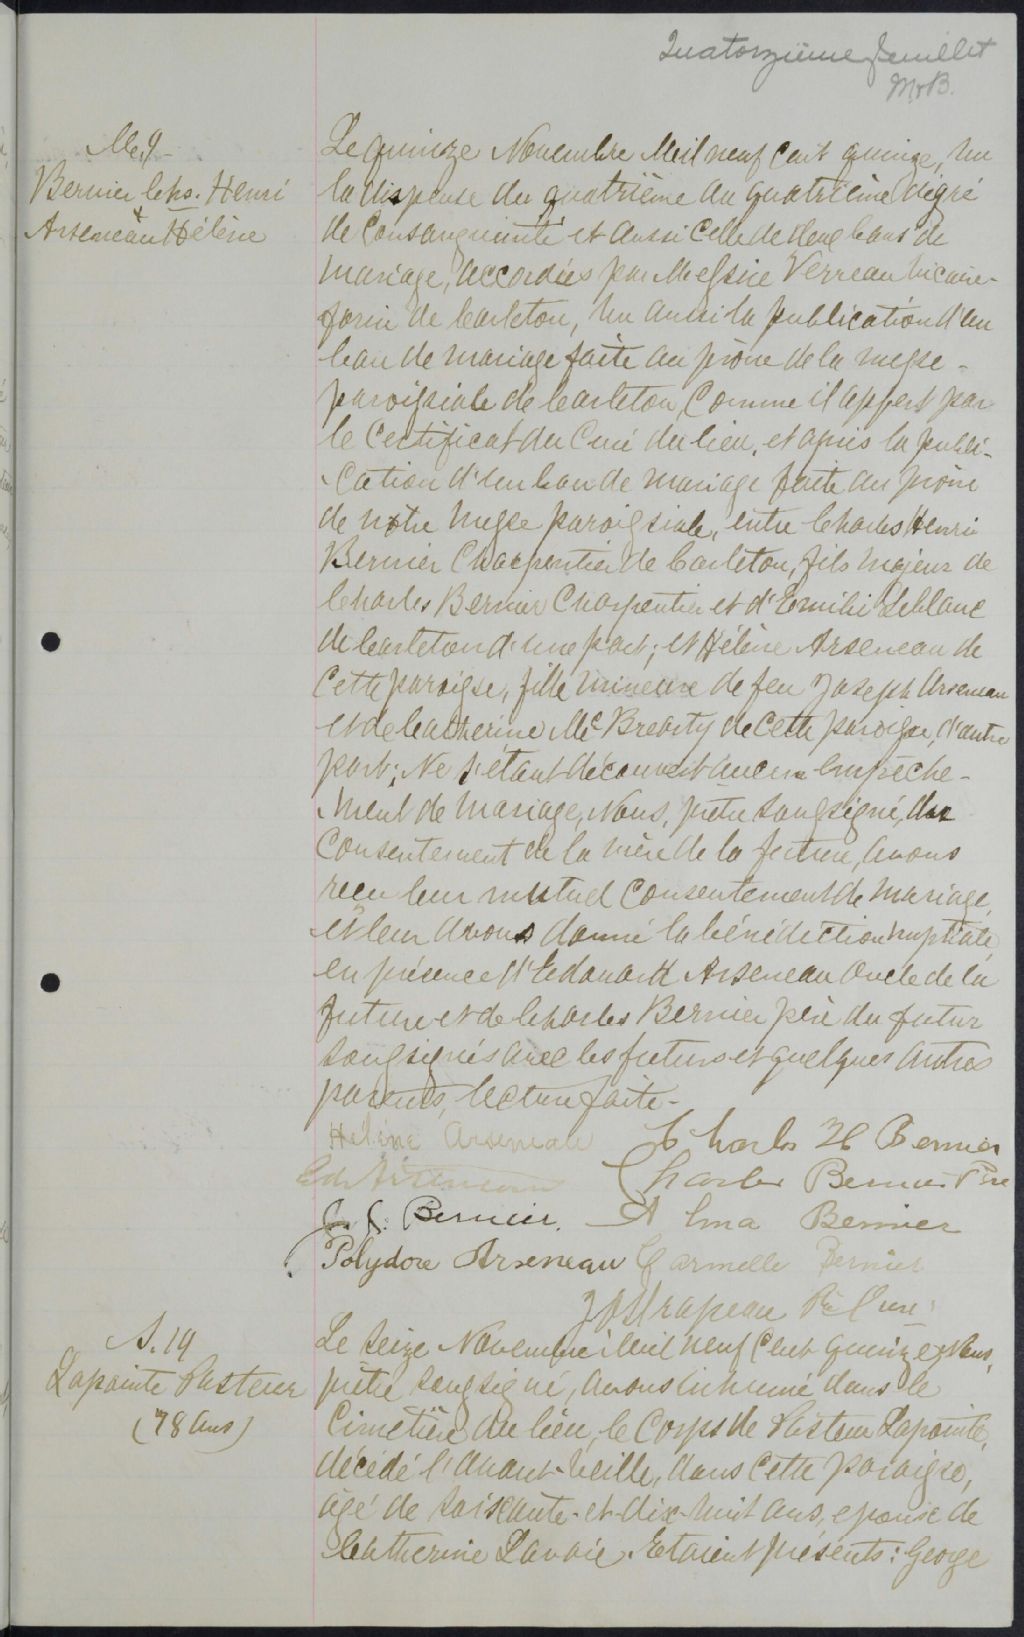 Quatorzième feuillet
M. 9
Bernier Chs. Henri
+
Arseneau Hélène
Le quinze Novembre Mil neuf cent quinze, Vu
la dispense du quatrième au quatrième dégré
de Consanguinité et aussi Celle de deux bans de
mariage, accordées par Messire Verreau Vicaire-
forin de Carleton, Vu aussi la publication d'un
ban de mariage faite au prône de la messe-
paroissiale de Carleton, Comme il appert par
le Certificat du Curé du lieu, et après la publi-
-cation d'un ban de mariage faite au prône
de notre messe paroissiale, entre Charles Henri
Bernier Charpentier de Carleton, fils majeur de
Charles Bernier Charpentier et d'Emilie Leblanc
de Carleton d'une part; et Hélène Arseneau de
Cette paroisse, fille mineure de feu Joseph Arseneau
et de Catherine McBrearty de Cette paroisse, d'autre
part; Ne s'étant découvert aucun empêche-
-ment de mariage, Nous, prêtre soussigné, du
Consentement de la mère de la future, avons
reçu leur mutuel Consentement de mariage,
et leur avons donné la bénédiction nuptiale
en présence d'Edouard Arseneau Oncle de la
future et de Charles Bernier père du futur
soussignés avec les futurs et quelques autres
parents, lecture faite-
Hélène Arseneau Charles H Bernier
Ed. Arseneau Charles Bernier Père
J. C. Bernier. Alma Bernier
Polydore Arseneau Carmelle Bernier
Ptre Curé
S. 19
Lapointe Pasteur
(78 ans)
Le seize Novembre Mil neuf Cent quinze, Nous,
prêtre soussigné, avons inhumé dans le
Cimetière du lieu, le Corps de Pasteur Lapointe,
décédé l'avant-veille, dans Cette paroisse,
âgé de soixante-et-dix-huit ans, epoux de
Catherine Lavoie. Etaient présents: George